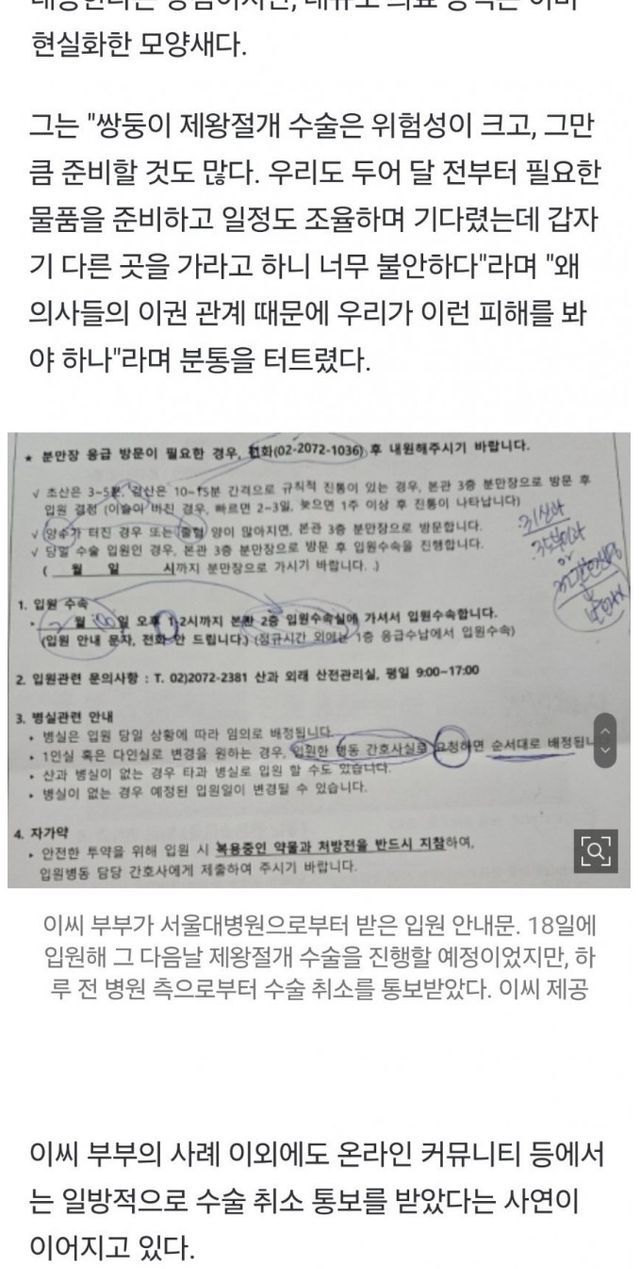 현실화한 모양새다.
그는 "쌍둥이 제왕절개 수술은 위험성이 크고, 그만
큼 준비할 것도 많다. 우리도 두어 달 전부터 필요한
물품을 준비하고 일정도 조율하며 기다렸는데 갑자
기 다른 곳을 가라고 하니 너무 불안하다"라며 "왜
의사들의 이권 관계 때문에 우리가 이런 피해를 봐
야 하나"라며 분통을 터트렸다.
★ 분만장 응급 방문이 필요한 경우, 전화(02-2072-1036) 후 내원해주시기 바랍니다.
√ 초산은 3~5분, 경산은 10~15분 간격으로 규칙적 진통이 있는 경우, 본관 3층 분만장으로 방문 후
입원 결정 (이슬이 비친 경우, 빠르면 2~3일, 늦으면 1주 이상 후 진통이 나타납니다)
√ 양수가 터진 경우 또는 출혈 양이 많아지면, 본관 3층 분만장으로 방문합니다.
√ 당일 수술 입원인 경우, 본관 3층 분만장으로 방문 후 입원수속을 진행합니다.
( 월 일 시까지 분만장으로 가시기 바랍니다. )
1. 입원 수속
• 2 월 일 오후 1-2시까지 본관 2층 입원수속실에 가셔서 입원수속합니다.
(입원 안내 문자, 전화 안 드립니다.) (정규시간 외에는 1층 응급수납에서 입원수속)
2. 입원관련 문의사항 : T. 02)2072-2381 산과 외래 산전관리실, 평일 9:00~17:00
3. 병실관련 안내
• 병실은 입원 당일 상황에 따라 임의로 배정됩니다.
• 1인실 혹은 다인실로 변경을 원하는 경우, 입원한 병동 간호사실로 요청하면 순서대로 배정됩니
• 산과 병실이 없는 경우 타과 병실로 입원 할 수도 있습니다.
• 병실이 없는 경우 예정된 입원일이 변경될 수 있습니다.
4. 자가약
• 안전한 투약을 위해 입원 시 복용중인 약물과 처방전을 반드시 지참하여,
입원병동 담당 간호사에게 제출하여 주시기 바랍니다.
이씨 부부가 서울대병원으로부터 받은 입원 안내문. 18일에
입원해 그 다음날 제왕절개 수술을 진행할 예정이었지만, 하
루 전 병원 측으로부터 수술 취소를 통보받았다. 이씨 제공
이씨 부부의 사례 이외에도 온라인 커뮤니티 등에서
는 일방적으로 수술 취소 통보를 받았다는 사연이
이어지고 있다.